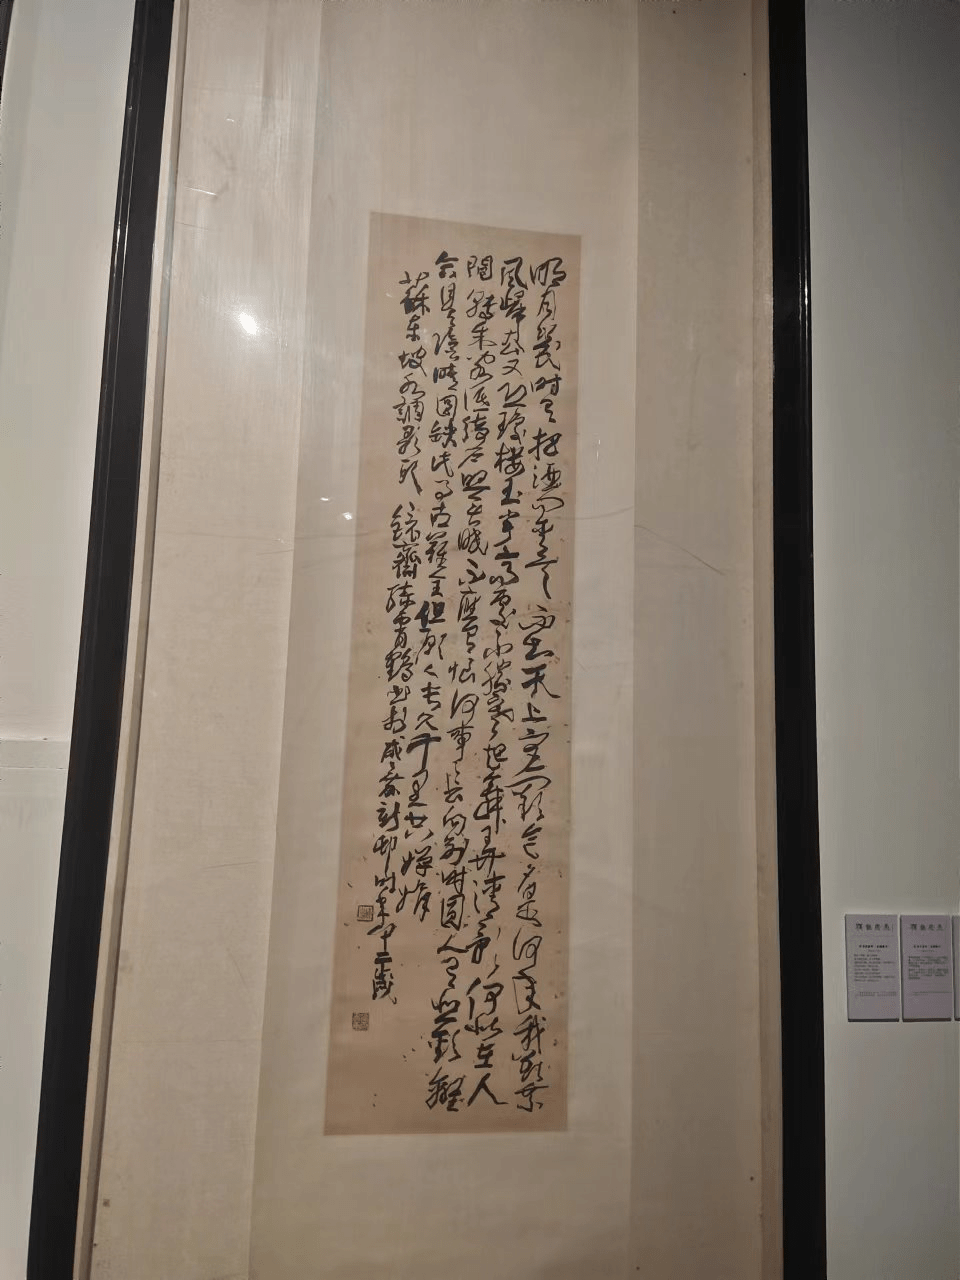 明月幾時有把酒問青天不知天上宮闕今夕是何年我欲乘
風歸去又恐瓊樓玉宇高處不勝寒起舞弄清影何似在人
間轉朱閣低綺户照無眠不應有恨何事長向別時圓人有悲歡離
合月有陰晴圓缺此事古難全但願人長久千里共嬋娟
蘇東坡水調歌頭
錄齋陳 鶴書於成 新邨時年 二歲